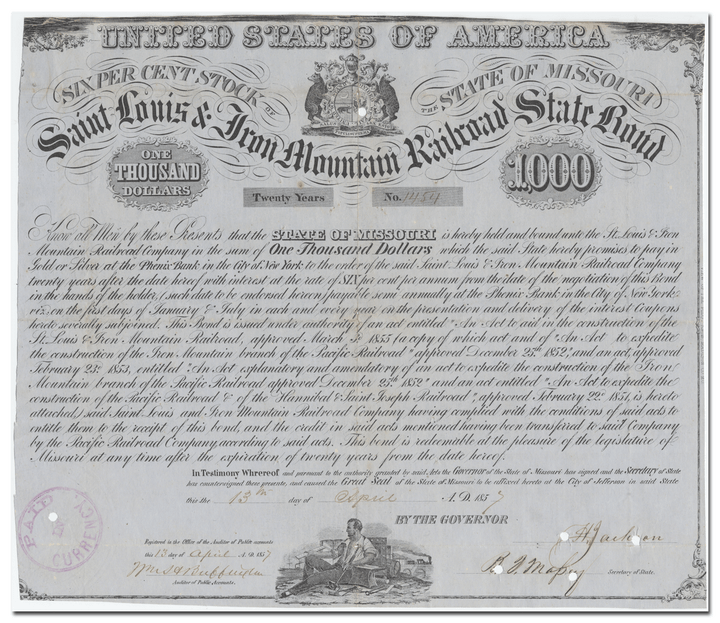 UNITED STATES OF AMERICA
SIX PER CENT STOCK OF THE STATE OF MISSOURI
Saint Louis & Iron Mountain Railroad State Bond
ONE THOUSAND DOLLARS
1000
Twenty Years No. 1454
Know all Men by these Presents that the STATE OF MISSOURI is hereby held and bound unto the St. Louis & Iron
Mountain Railroad Company in the sum of One Thousand Dollars which the said State hereby promises to pay in
Gold or Silver at the Phenix Bank in the City of New York to the order of the said Saint Louis & Iron Mountain Railroad Company
twenty years after the date hereof with interest at the rate of SIX per cent per annum from the date of the negotiation of this Bond
in the hands of the holder, (such date to be endorsed hereon) payable semi annually at the Phenix Bank in the City of New York
viz, on the first days of January & July in each and every year on the presentation and delivery of the interest Coupons
hereto severally subjoined. This Bond is issued under authority of an act entitled "An Act to aid in the construction of the
St. Louis & Iron Mountain Railroad", approved March 3d 1855 (a copy of which act and of "An Act to expedite
the construction of the Iron Mountain branch of the Pacific Railroad" approved December 25th 1852, and an act, approved
February 23d 1853, entitled "An Act explanatory and amendatory of an act to expedite the construction of the Iron
Mountain branch of the Pacific Railroad approved December 25th 1852" and an act entitled "An Act to expedite the
construction of the Pacific Railroad & of the Hannibal & Saint Joseph Railroad", approved February 22d 1851, is hereto
attached,) said Saint Louis and Iron Mountain Railroad Company having complied with the conditions of said acts to
entitle them to the receipt of this bond, and the credit in said acts mentioned having been transferred to said Company
by the Pacific Railroad Company according to said acts. This bond is redeemable at the pleasure of the legislature of
Missouri at any time after the expiration of twenty years from the date hereof.
In Testimony Whereof and pursuant to the authority granted by said Acts the Governor of the State of Missouri has signed and the Secretary of State
has countersigned these presents, and caused the Great Seal of the State of Missouri to be affixed hereto at the City of Jefferson in said State
this the 13th day of April A.D. 1857
BY THE GOVERNOR
Registered in the Office of the Auditor of Public accounts
this 13 day of April A.D. 1857
Auditor of Public Accounts.
Jackson
Secretary of State.
PAID
CURRENCY